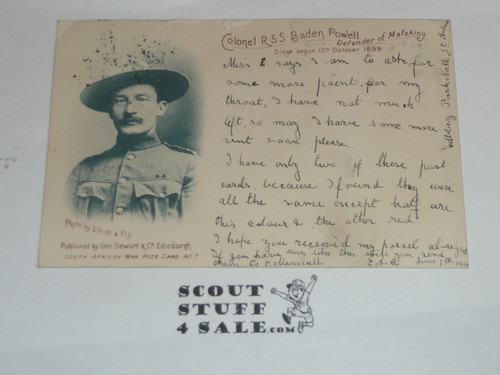 Colonel R·S·S·Baden Powell
Defender of Mafeking
Siege began 13th October 1899
Miss E. says I am to ask for
some more paint, for my
throat, I have not much
left, so may I have some more
sent soon please
I have only two of these post
cards, because I found they were
all the same except half are
this colour & the other red.
I hope you received my parcel alright
If you have any like this, will you send
them to
June 7th
Photo by Elliott & Fry
Published by Geo Stewart & Co. Edinburgh.
SOUTH AFRICAN WAR POST CARD No. 7
SCOUT
STUFF
4 SALE.com